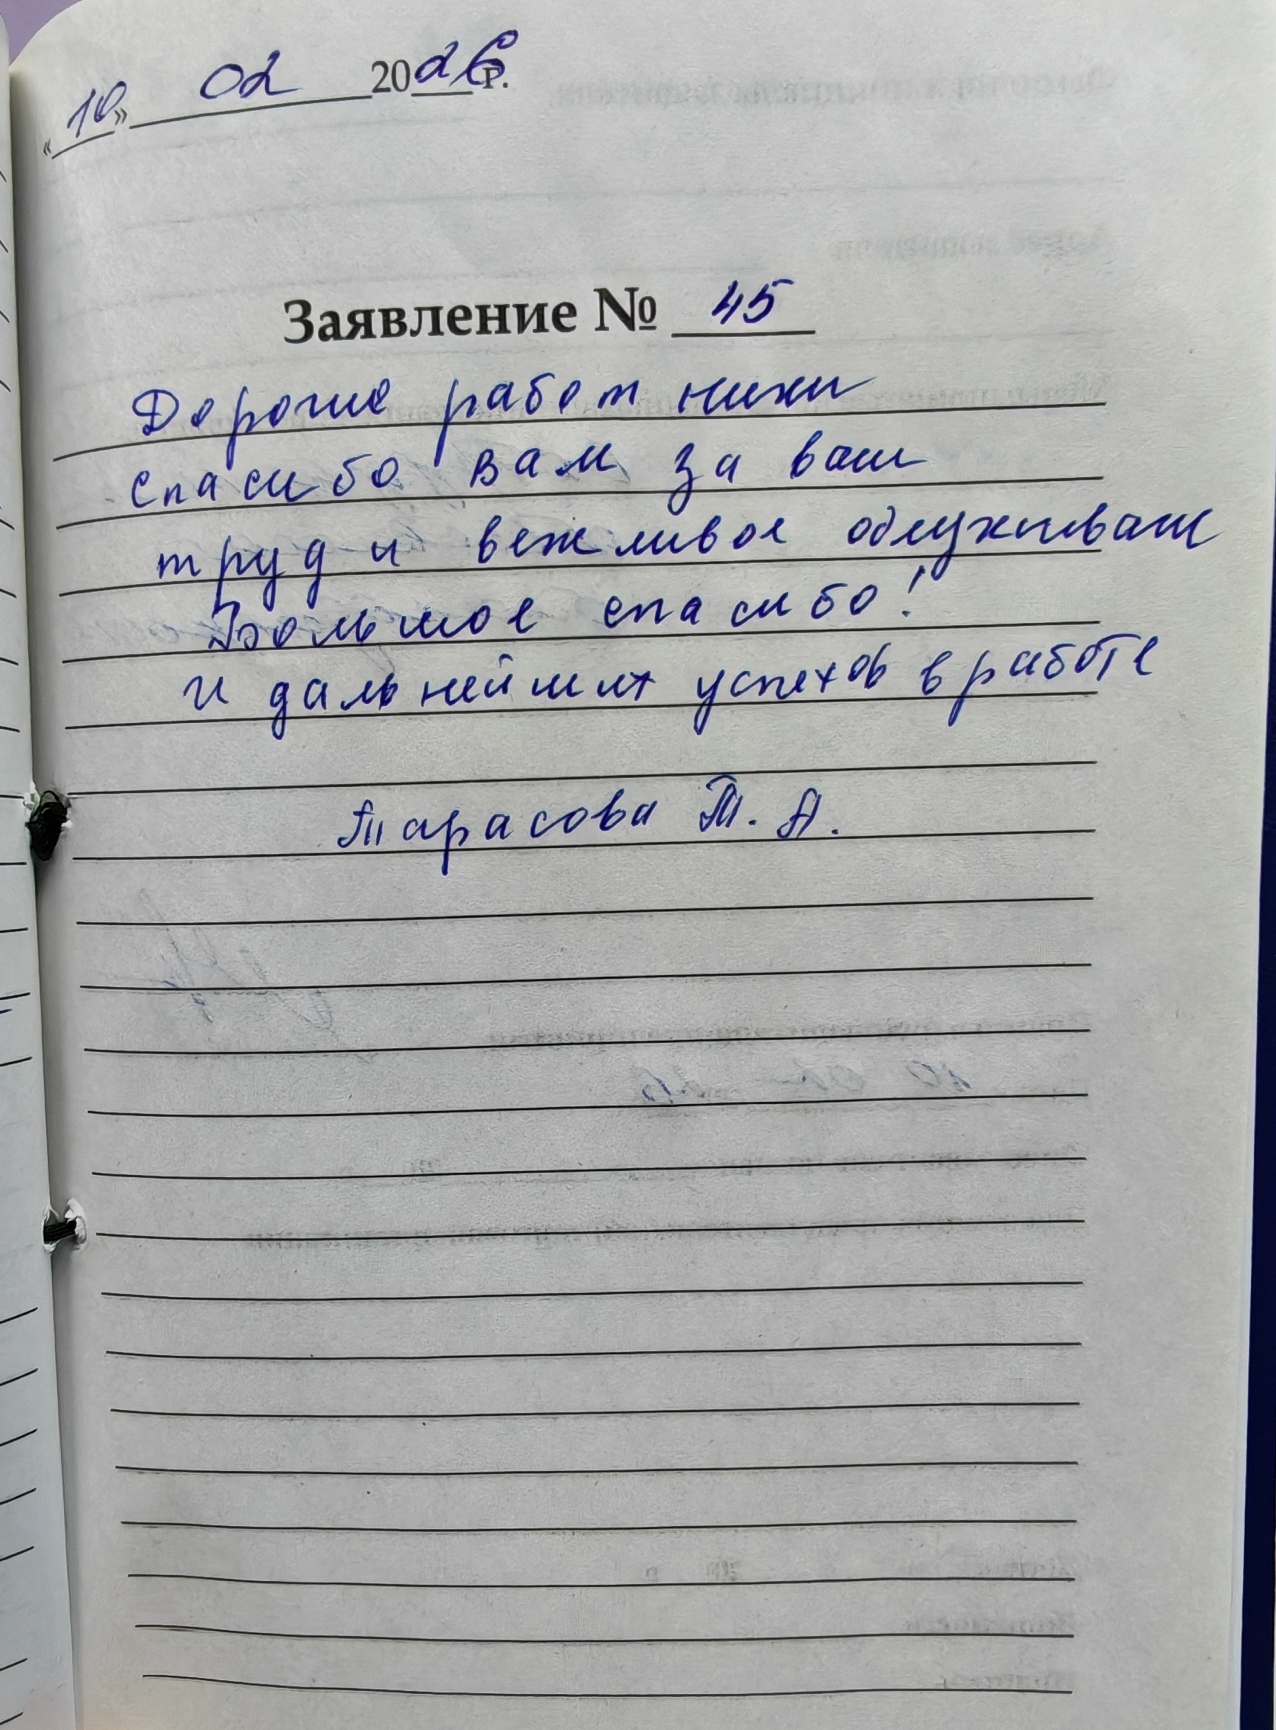 «10» 02 2026 г.
Заявление № 45
Дорогие работники
спасибо вам за ваш
труд и вежливое обслуживан
Большое спасибо!
и дальнейших успехов в работе
Тарасова Т. А.